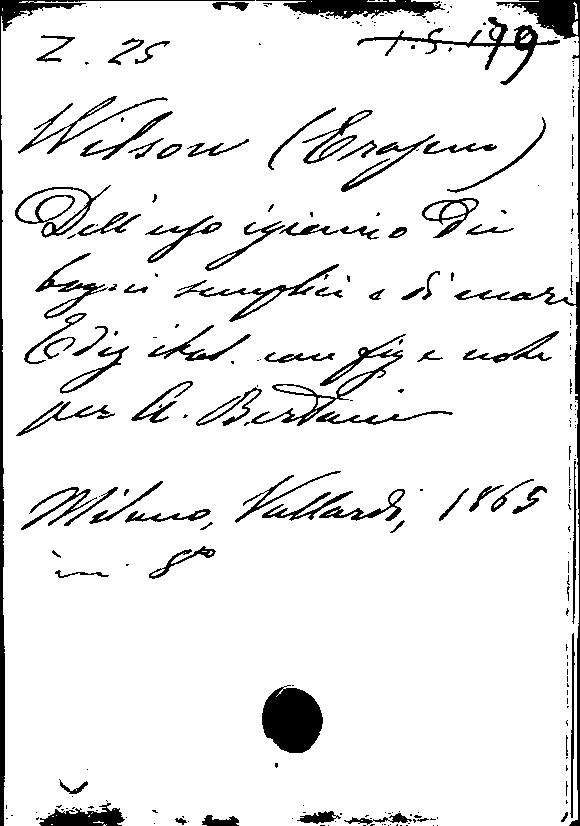 Z. 25 1.S. 179
Wilson (Erasmo)
Dell'uso igienico dei
bagni semplici e di mare
Ediz ital. con fig e note
per A. Bertani
Milano, Vallardi, 1865
in 8º